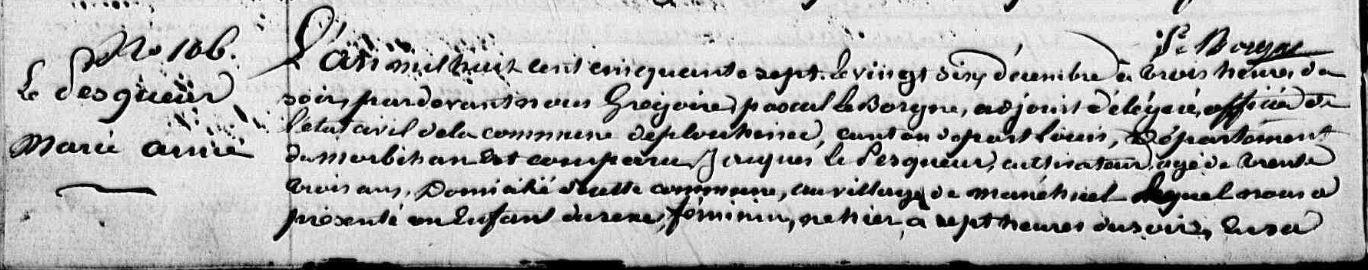 No 106.
Le Pesqueur
Marie anne
Le Borgne
L'an mil huit cent cinquante sept. le vingt six décembre à trois heures du
soir, pardevant nous Grégoire pascal le Borgne, adjoint délégué, officier de
l'état civil de la commune de plouhinec, canton de port Louis, Département
du morbihan Est comparu Jacques le Pesqueur, cultivateur, agé de trente
trois ans, Domicilié de cette commune, au village de manéhuel lequel nous a
présenté un Enfant du sexe féminin, né hier, à sept heures du soir, En sa